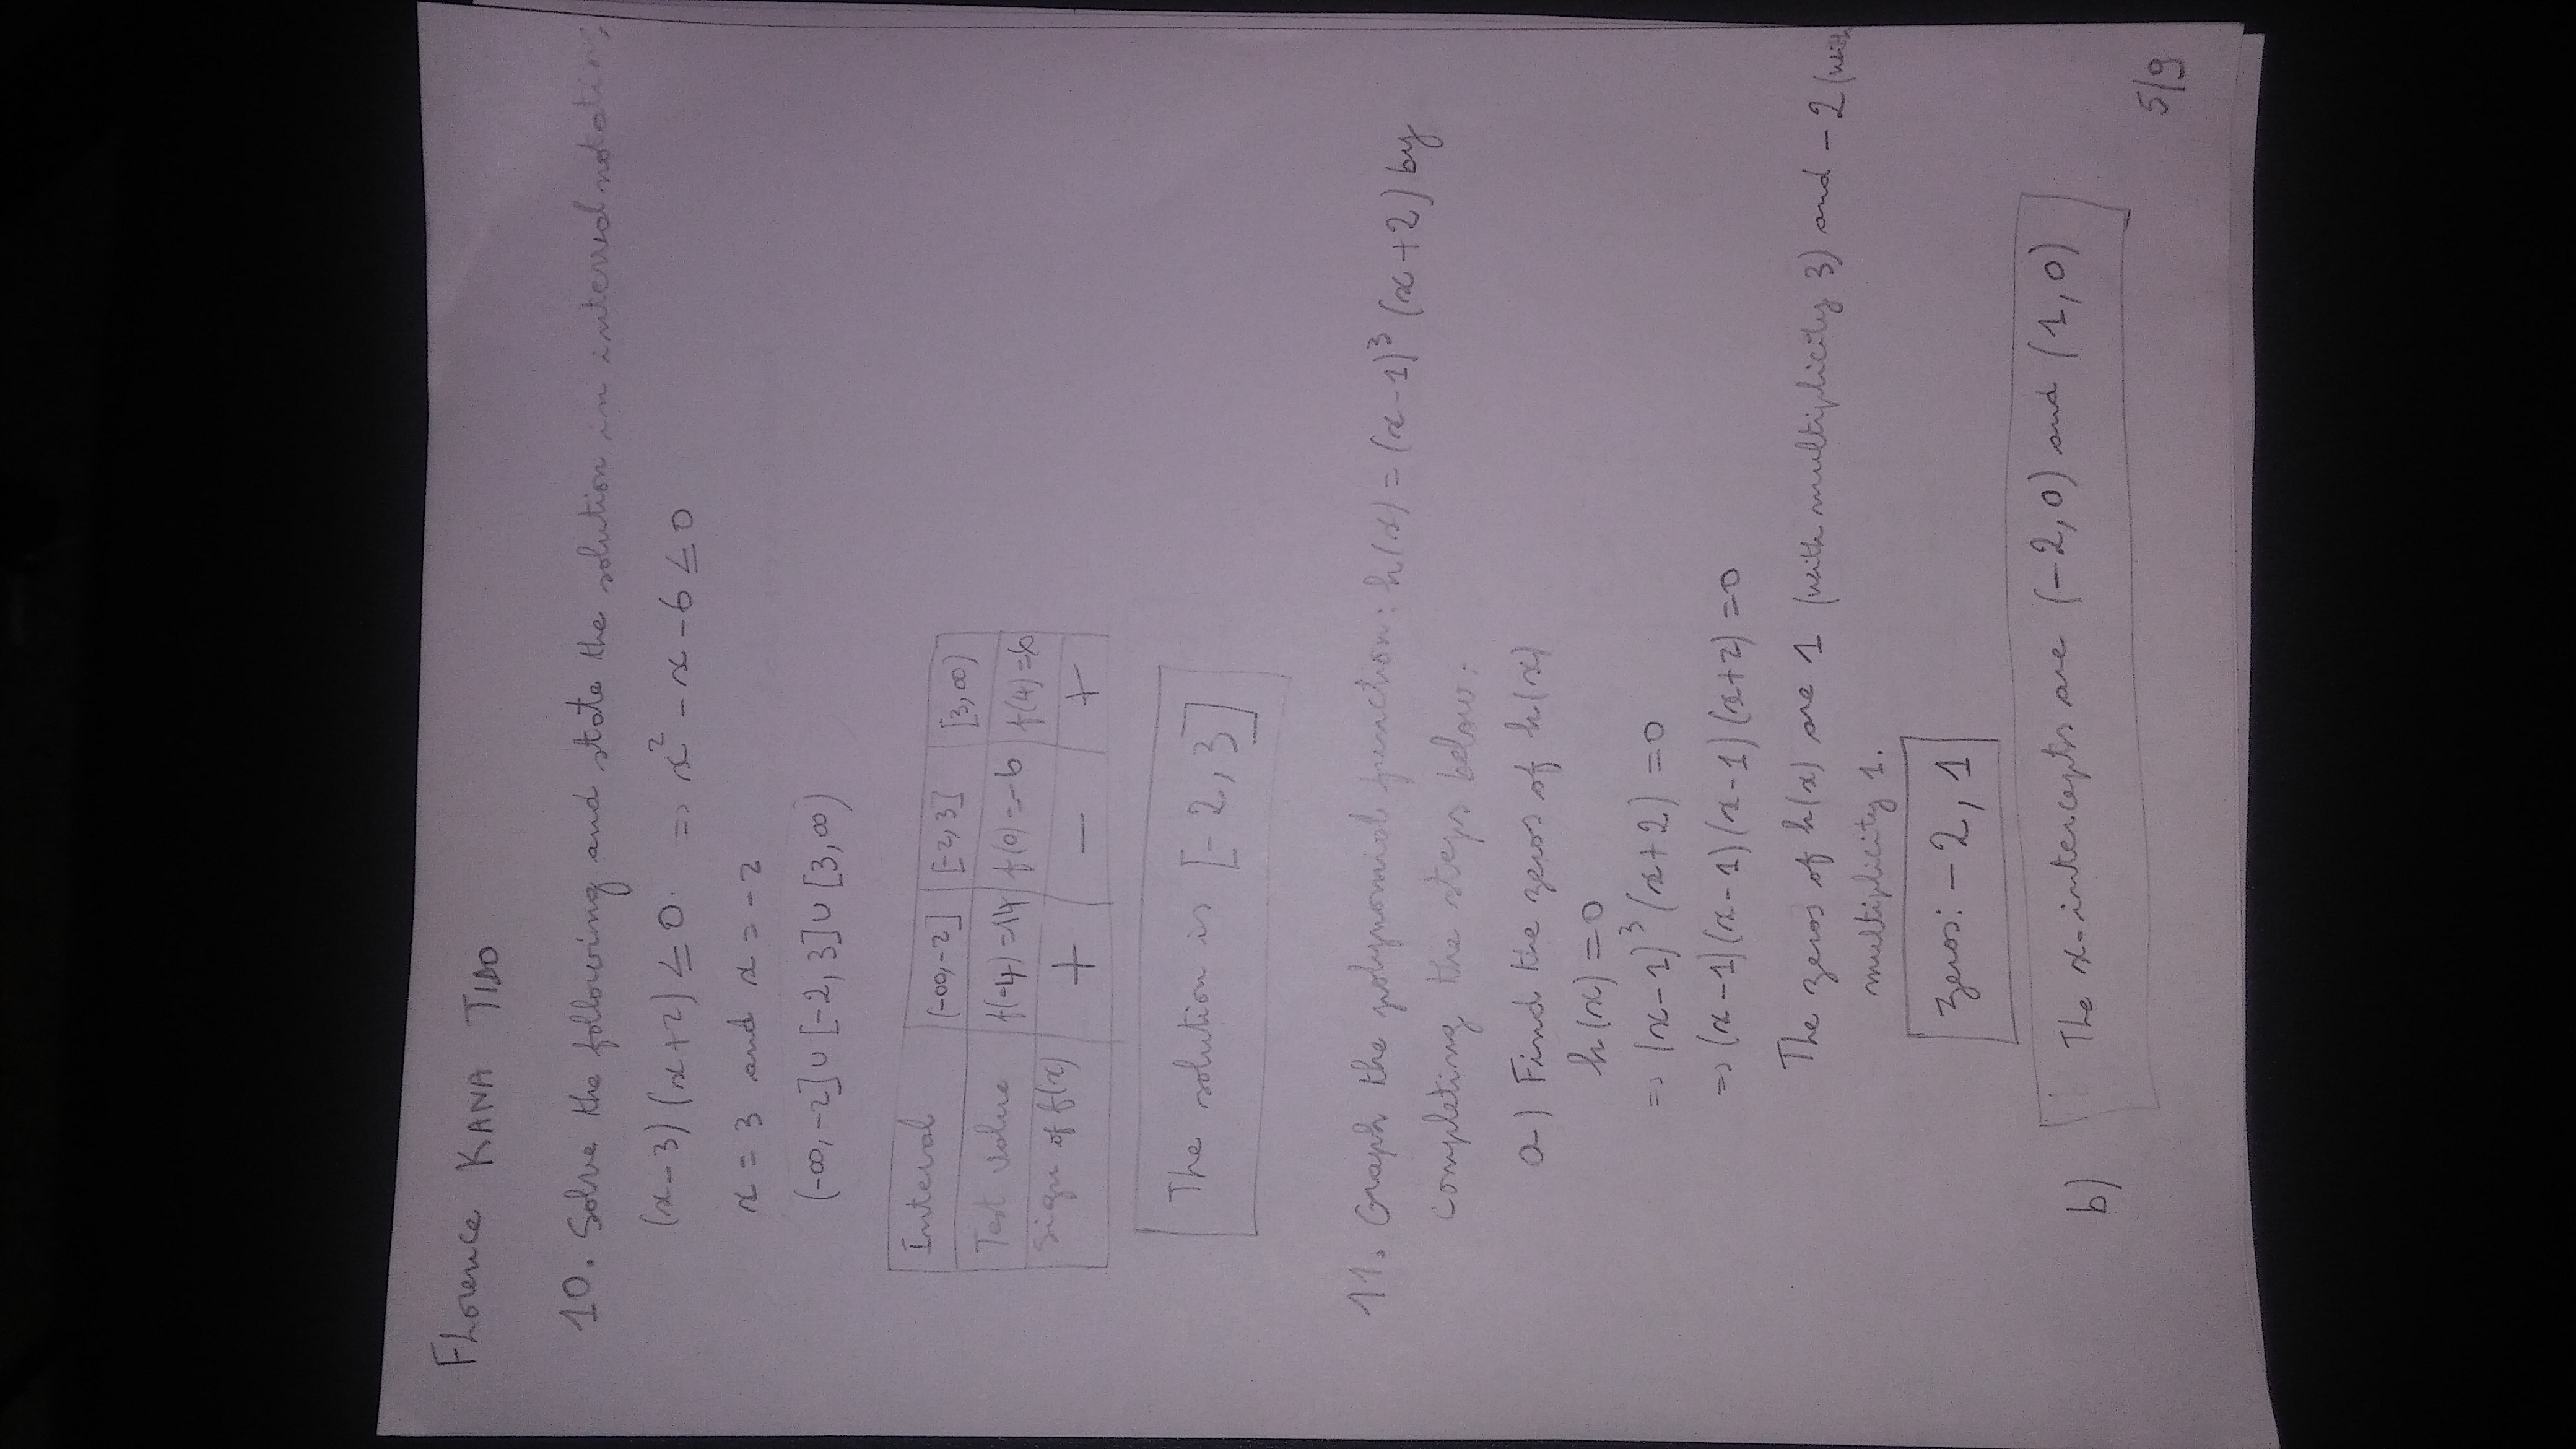 Florence KANA TIDO
10. Solve the following and state the solution in interval notation;
(x-3)(x+2) ≤ 0. => x² - x - 6 ≤ 0
x = 3 and x = -2
(-∞,-2]∪[-2,3]∪[3,∞)
Inteval (-∞,-2] [-2,3] [3,∞)
Test value f(-4)=14 f(0)=-6 f(4)=6
Sign of f(x) + - +
The solution is [-2,3]
11. Graph the polynomial function: h(x) = (x-1)³ (x+2) by
completing the steps below:
a) Find the zeros of h(x)
h(x) = 0
=> (x-1)³(x+2) = 0
=> (x-1)(x-1)(x-1)(x+2) = 0
The zeros of h(x) are 1 (with multiplicity 3) and -2 (with
multiplicity 1.
zeros: -2, 1
b) The x-intercepts are (-2,0) and (1,0)
5/9